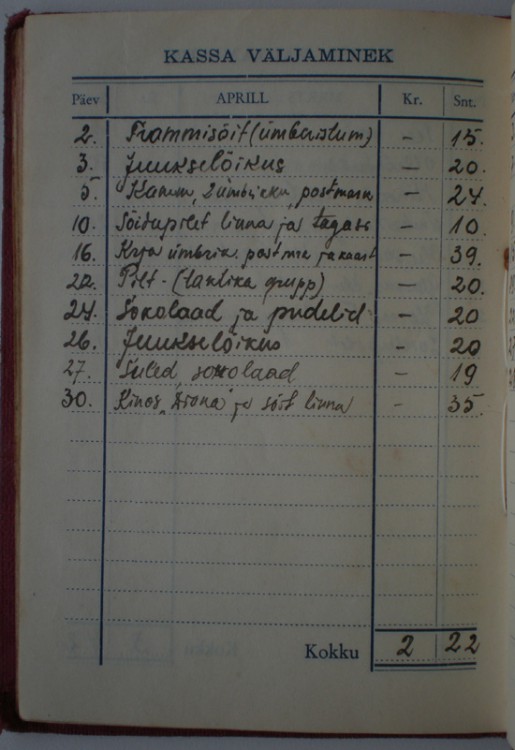 KASSA VÄLJAMINEK
Päev APRILL Kr. Snt.
2. Trammisõit (ümberistum) — 15.
3. Juukselõikus — 20.
5. Kamm, 2 ümbrikku, postmark — 24.
10. Sõidupilet linna ja tagasi — 10.
16. Kirja ümbrik. postmrk ja kaart — 39.
22. Pilt - (taktika grupp) — 20.
24. Sokolaad ja pudelid — 20
26. Juukselõikus — 20
27. Suled, sokolaad — 19
30. Kinos "Diana" ja sõit linna — 35.
Kokku 2 22